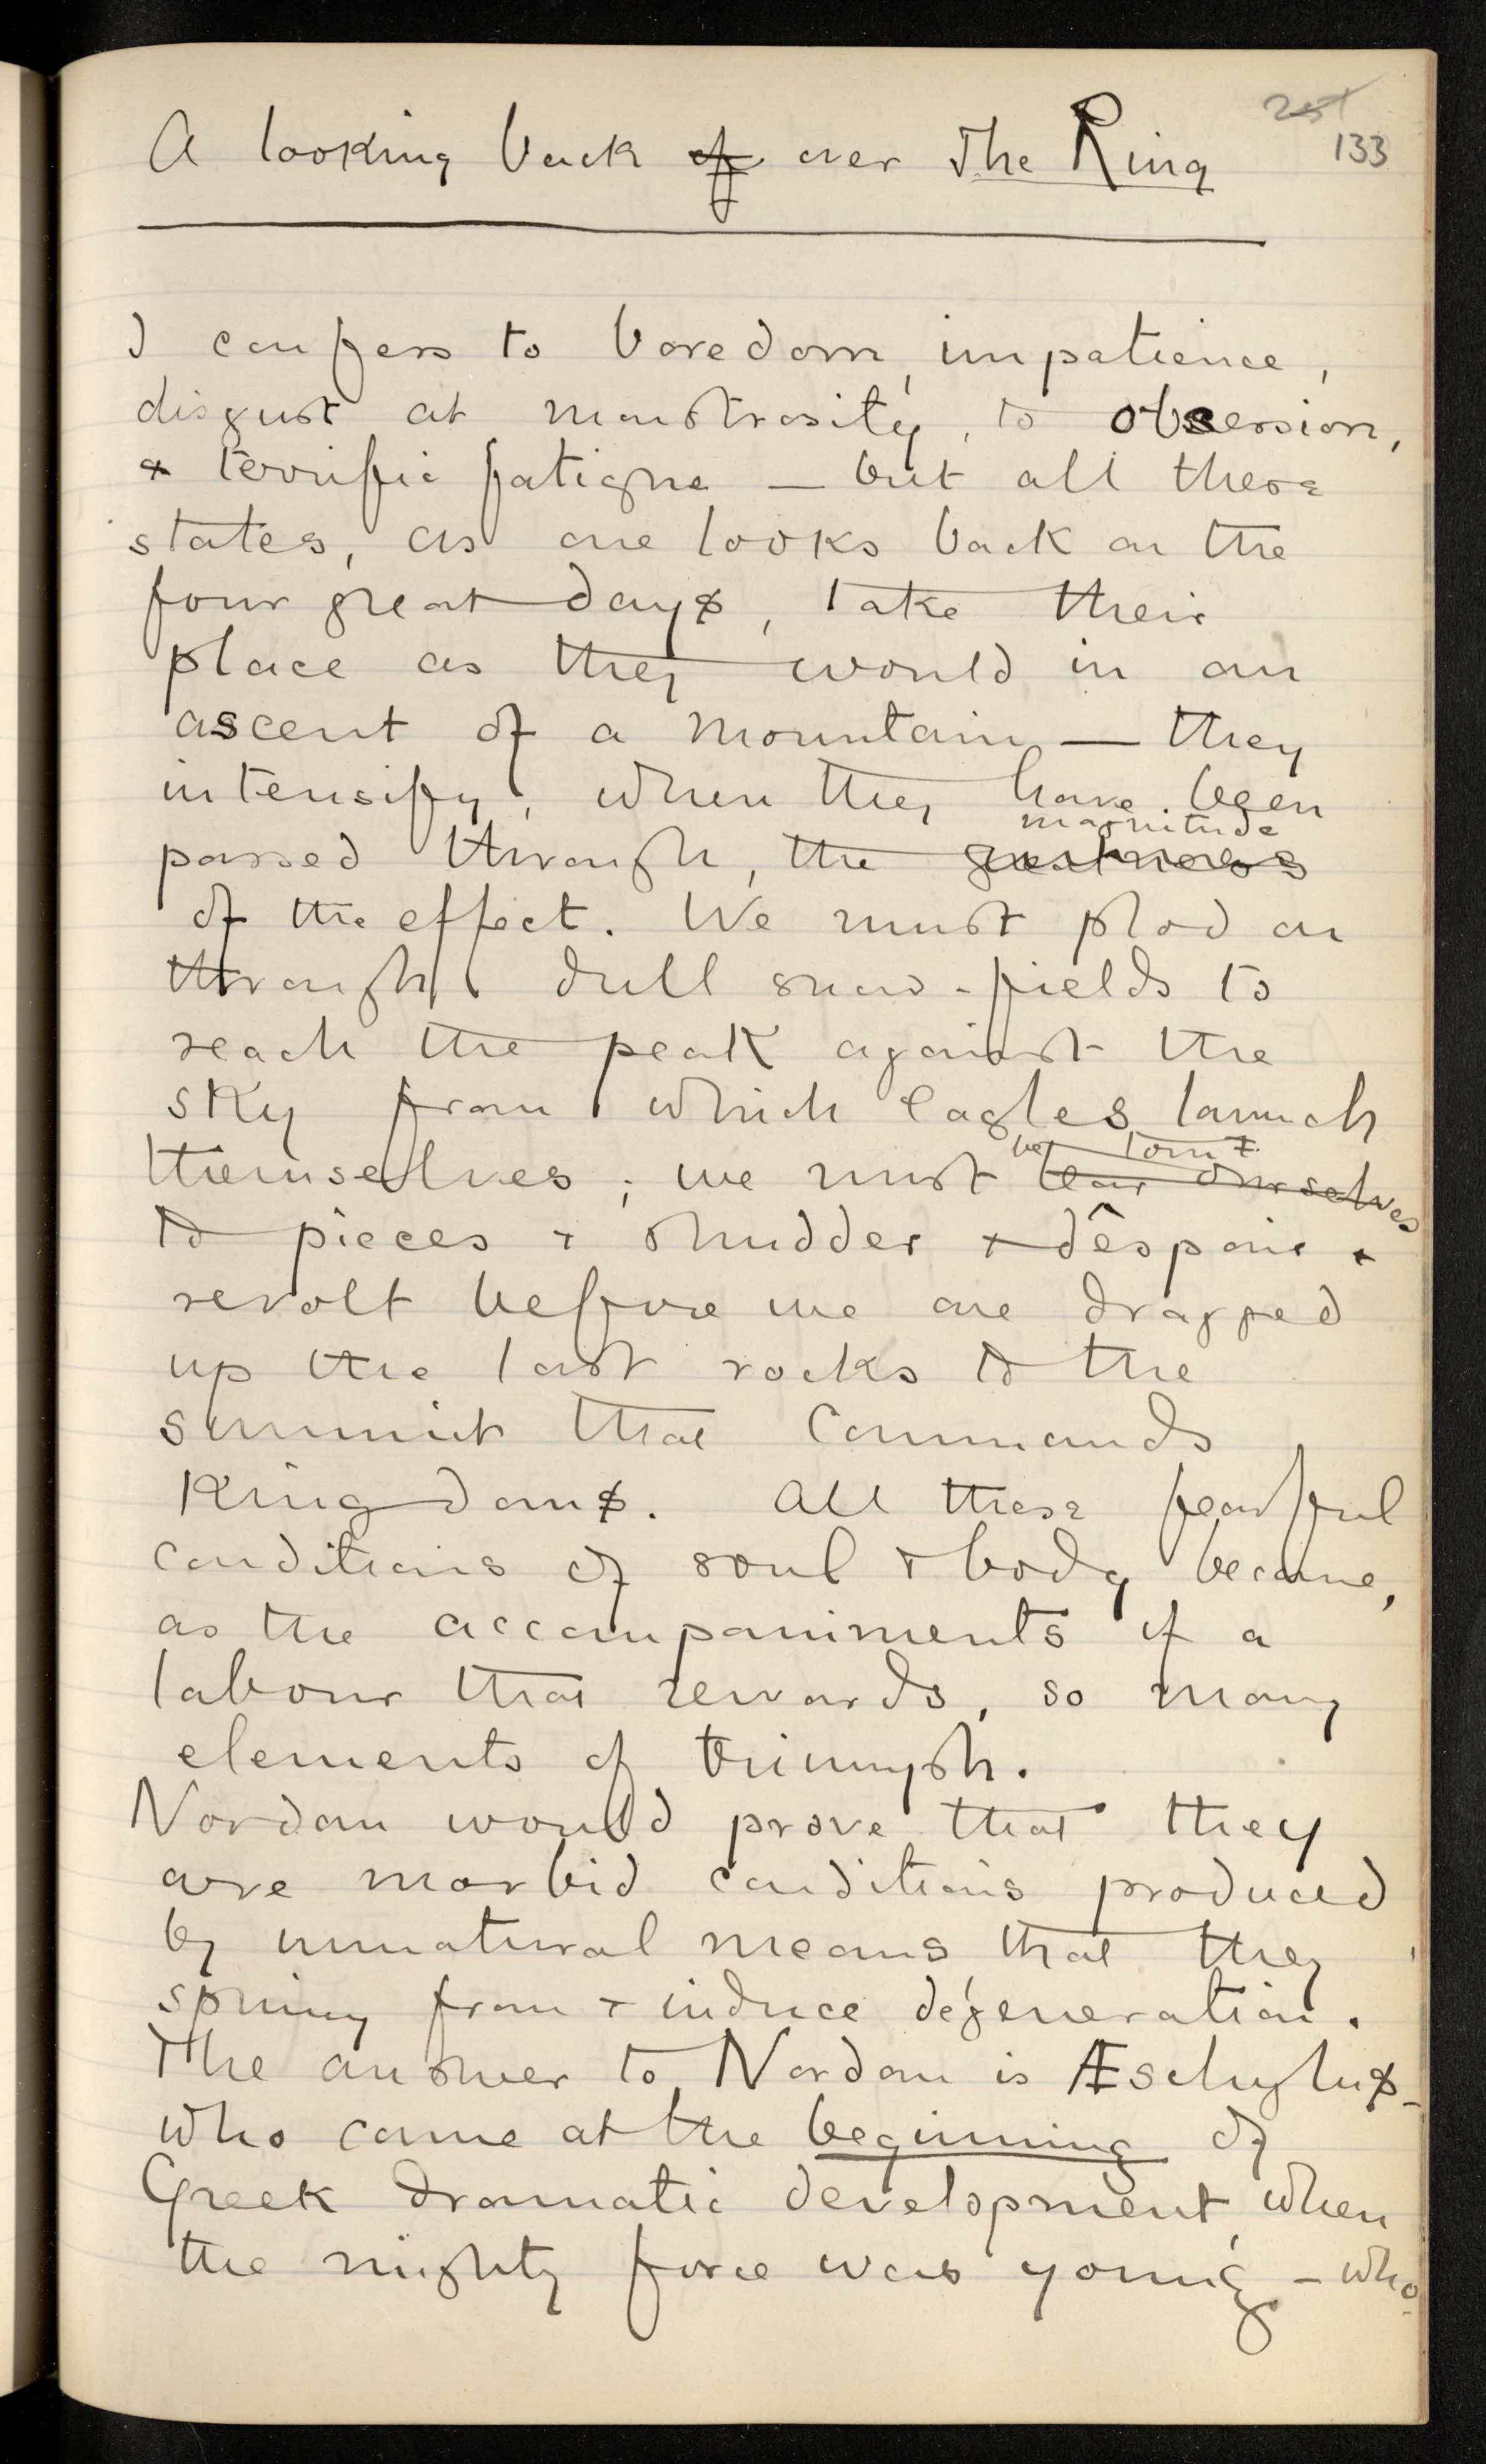 133
A looking back of over The Ring
I confess to boredom, impatience,
disgust at monstrosity, to obsession,
+ terrific fatigue — but all these
states, as one looks back on the
four great days, take their
place as they would in an
ascent of a mountain — they
intensify, when they have been
magnitude
passed through, the greatness
of the effect. We must plod on
through dull snow-fields to
reach the peak against the
sky from which eagles launch
be torn
themselves; we must tear ourselves
to pieces + shudder + despair +
revolt before we are dragged
up the last rocks to the
summit that commands
Kingdoms. All these fearful
conditions of soul + body become,
as the accompaniments of a
labour that rewards, so many
elements of triumph.
Nordau would prove that they
are morbid conditions produced
by unnatural means that they
spring from + induce degeneration.
The answer to Nordau is Æschylus –
who came at the beginning of
Greek dramatic development, when
the mighty force was young – who